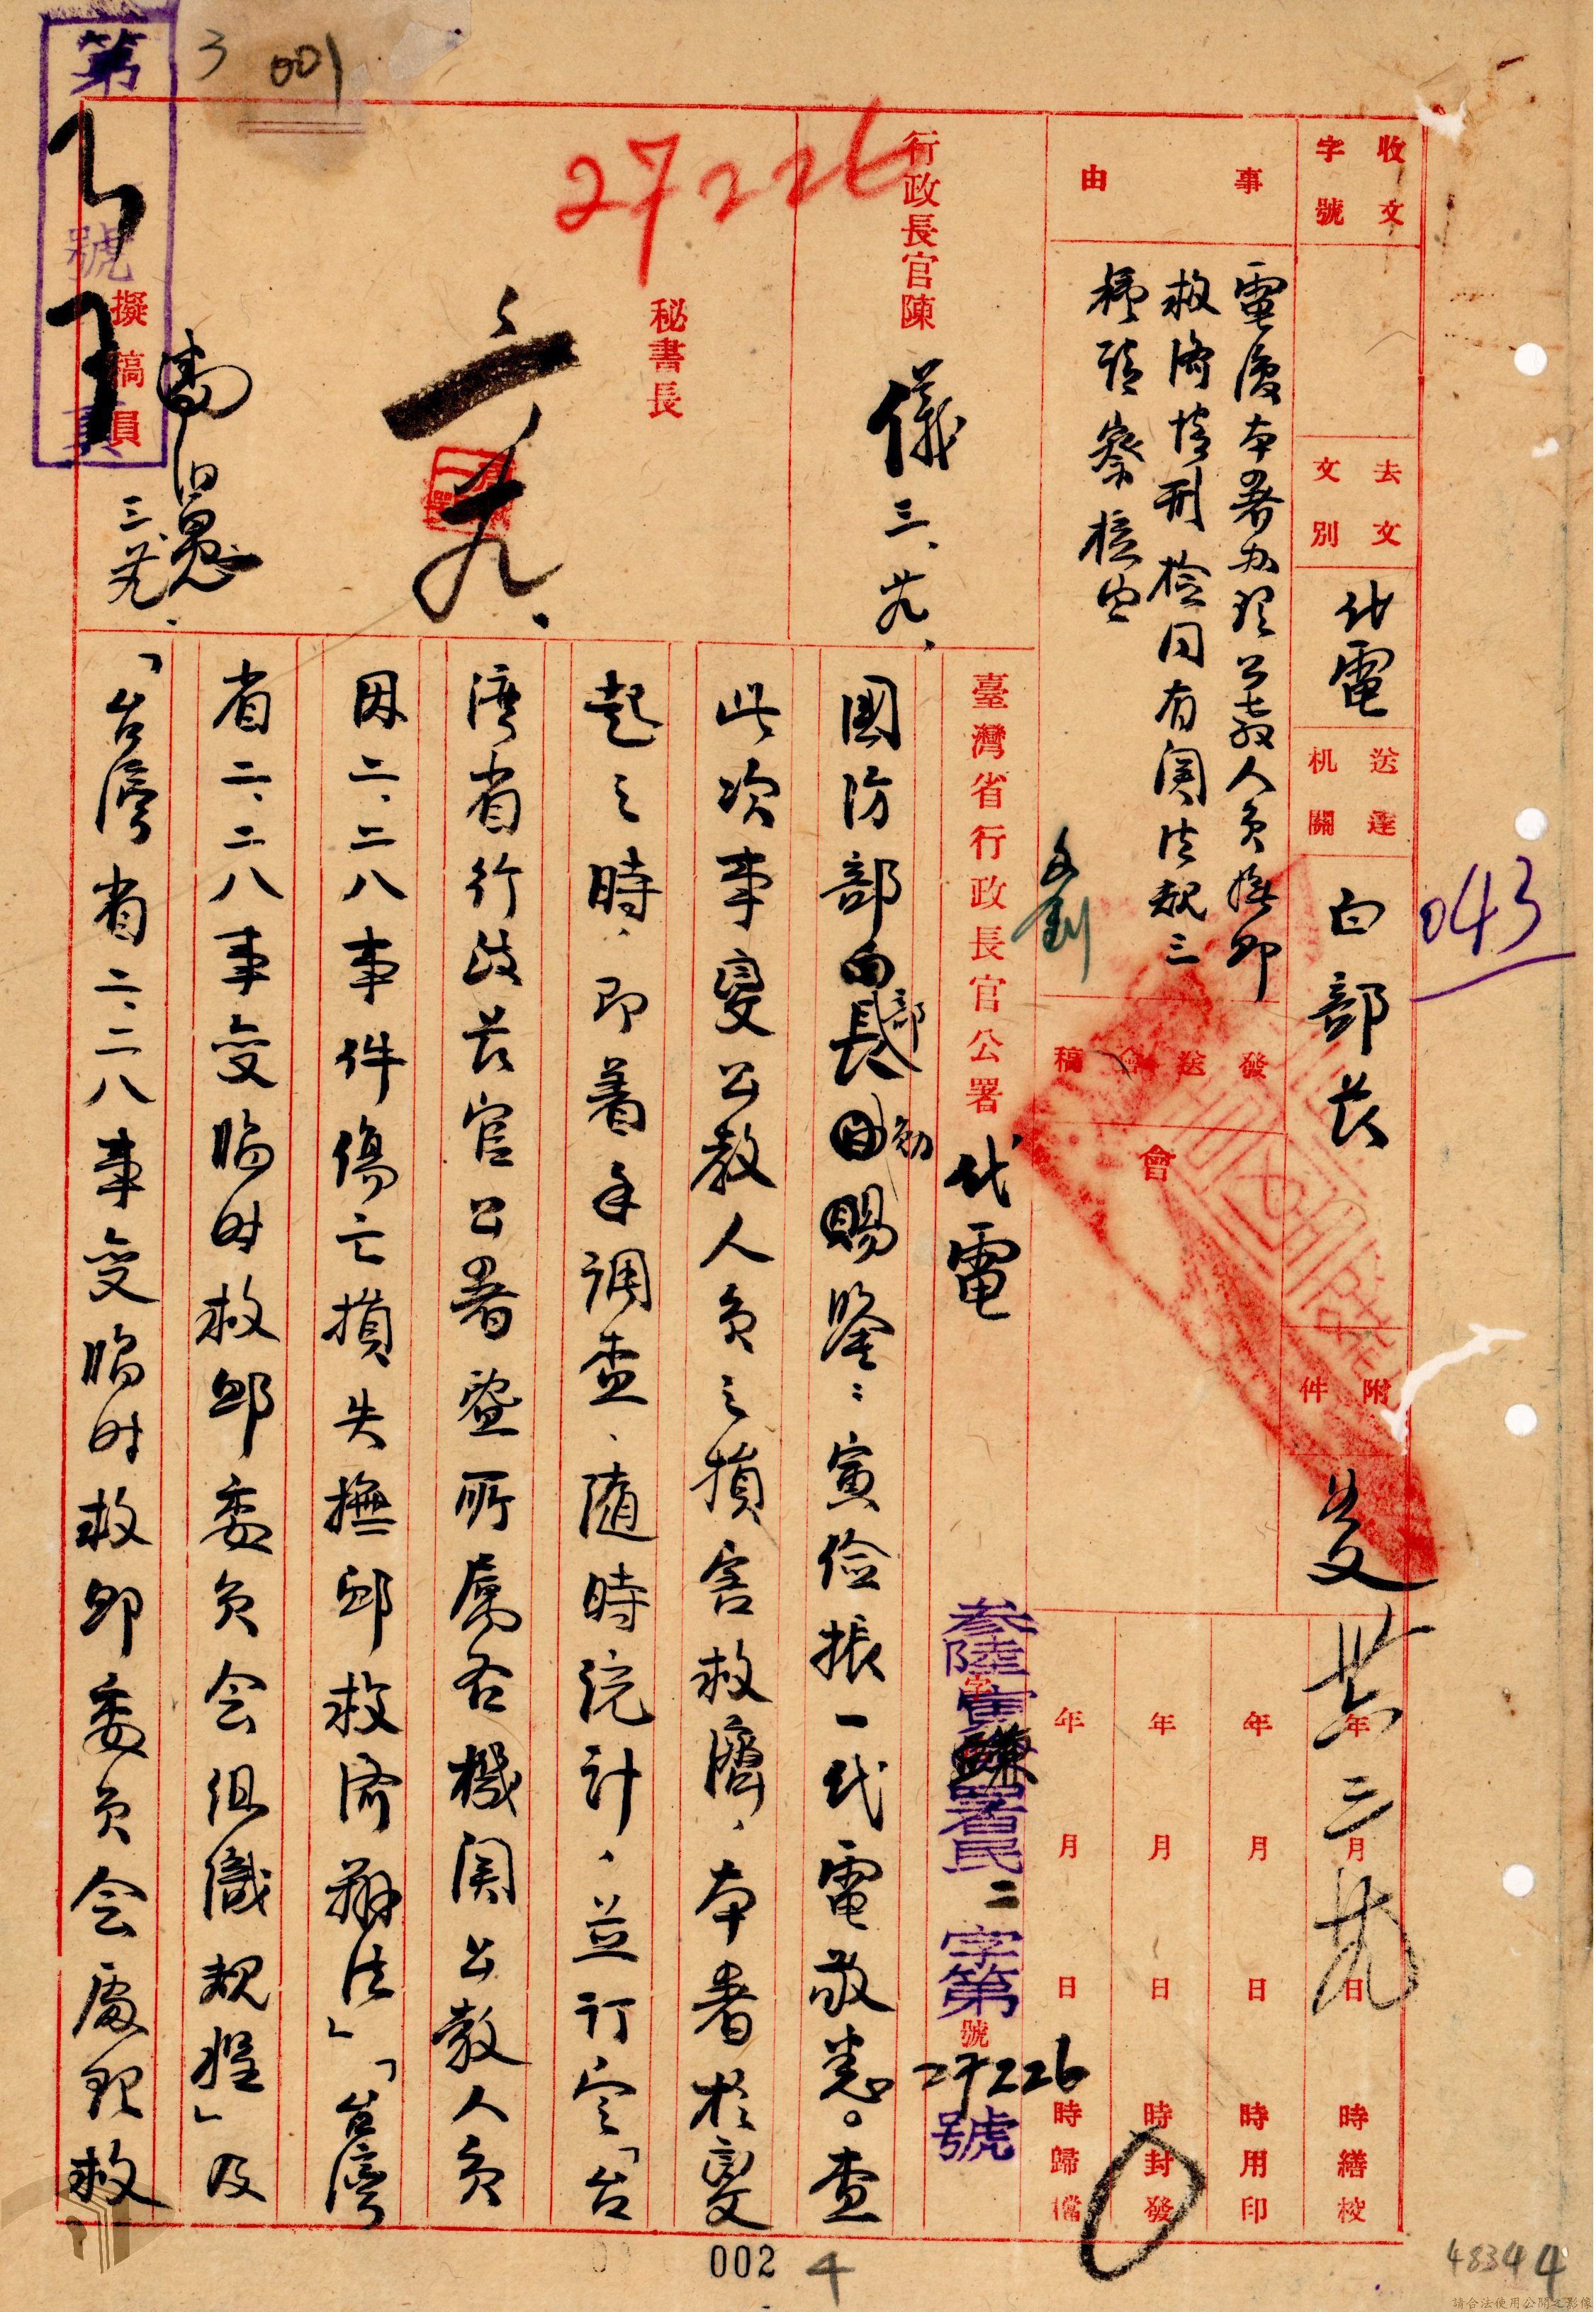 3 001
第
號
頁
收文字號
去文文別
代電
送達机關
白部長
附件
043
事由
電復本署办理公教人員撫卹
救济情形检同有関法規三
種請察核由
發送會稿
會
年三月 日 時繕校
年 月 日 時用印
年 月 日 時封發
年 月 日 時歸檔
行政長官陳 儀 三、廿九、
27226
秘書長
擬稿員
臺灣省行政長官公署代電
参陸寅 署民二字第27226號
國防部白部長勛鑒：寅儉振一代電敬悉。查
此次事變公教人員之損害救濟，本署於變
起之時，即着手调查，隨時统计，並订定「台
湾省行政长官公署暨所属各機関公教人員
因二、二八事件傷亡損失撫卹救济办法」「台湾
省二、二八事变临时救卹委員会组織規程」及
「台灣省二、二八事变临时救卹委員会處理救
002
4
48344
請合法使用公開之影像